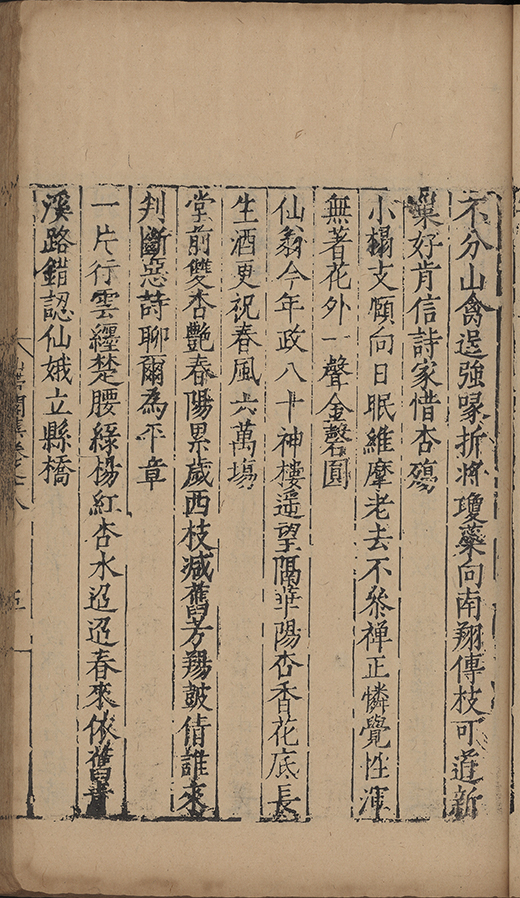 不分山禽逞強喙折將瓊蘂向南翔傳枝可道新
巢好肯信詩家惜杏殤
小榻支頤向日眠維摩老去不參禪正憐覺性渾
無著花外一聲金磬圓
仙翁今年政八十神樓遥望隔華陽杏香花底長
生酒更祝春風六萬塲
堂前雙杏艷春陽累歲西枝減舊芳羯鼓倩誰來
判斷惡詩聊爾為平章
一片行雲纏楚腰綠楊紅杏水迢迢春來依舊青
溪路錯認仙娥立縣橋
五